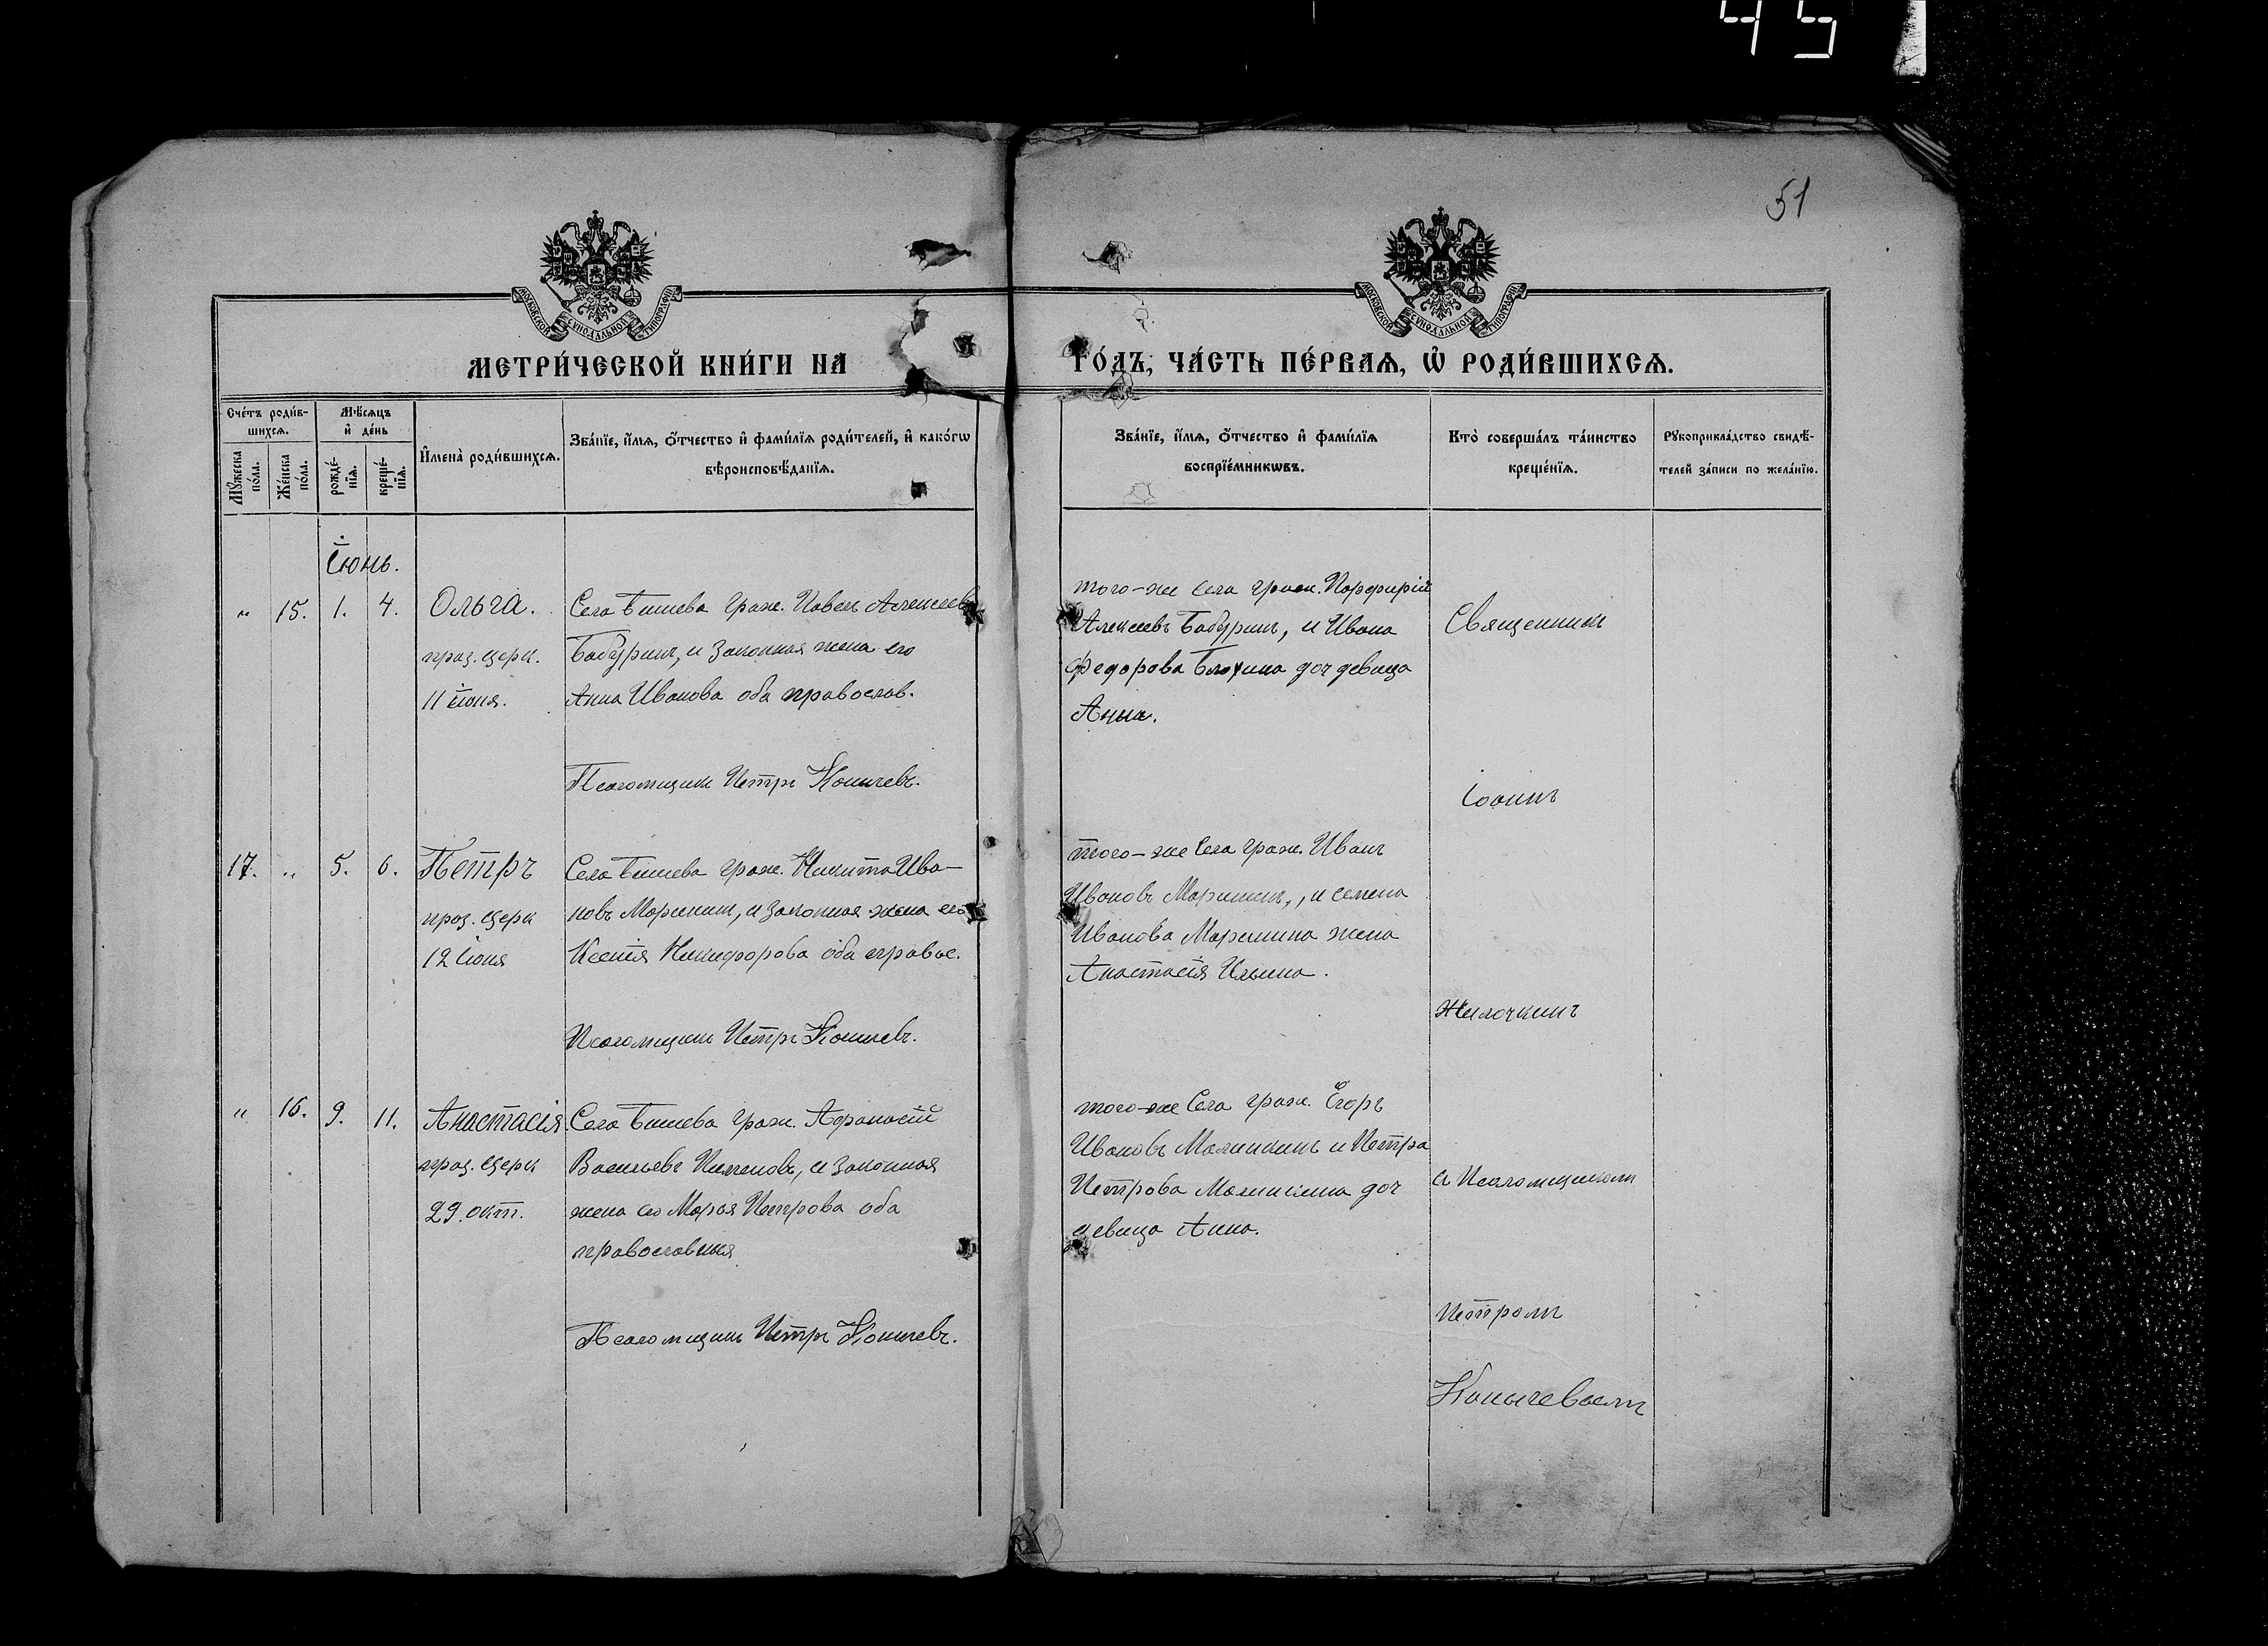 45
51
МОСКОВСКОЙ СУНОДАЛЬНОЙ ТИПОГРАФІИ
МОСКОВСКОЙ СУНОДАЛЬНОЙ ТИПОГРАФІИ
МЕТРИ́ЧЕСКОЙ КНИ́ГИ НА
ГО́ДЪ, ЧА́СТЬ ПЕ́РВАѦ, Ѿ РОДИ́ВШИХСѦ.
Сче́тъ роди́в-
шихсѧ.
Мѣ́сѧцъ
и҆ де́нь
Мꙋ́жеска
по́ла.
Же́нска
по́ла.
рожде́-
нїѧ.
креще́-
нїѧ.
И҆мена̀ роди́вшихсѧ.
Зва́нїе, и҆́мѧ, ѻ҆́тчество и҆ фами́лїѧ роди́телей, и҆ како́гѡ
вѣроисповѣ́данїѧ.
Зва́нїе, и҆́мѧ, ѻ҆́тчество и҆ фами́лїѧ
воспрїе́мникѡвъ.
Кто̀ соверша́лъ та́инство
креще́нїѧ.
Рꙋкоприкла́дство свидѣ́-
телей за́писи по жела́нїю.
Іюнь.
„ 15. 1. 4. Ольга.
праз. церк.
11 іюня.
Села Гра­ж. Павелъ Алексеевъ
Бабуринъ, и законная жена его
Анна Иванова оба православ.
Псаломщикъ Петръ Конычевъ.
того-же села граж. Порфирій
Алексеевъ Бабуринъ, и Ивана
Федорова Блохина доч девица
Анна.
Священникъ
Іоаннъ
17. „ 5. 6. Петръ
праз. церк
12 Іюня
Села граж. Никита Ива-
новъ Маришин, и законная жена его
Ксенія Никифорова оба правос.
Псаломщикъ Петръ Конычевъ.
того-же Села граж. Иванъ
Ивановъ Маришинъ, и семена
Иванова Маришина жена
Анастасія Ильина.
Жилочкинъ
„ 16. 9. 11. Анастасія
праз. церк
29. окт.
Села граж. Афанасій
Васильевъ Пименовъ, и законная
жена его Марья Петрова оба
православныя
Псаломщикъ Петръ Конычевъ.
того-же Села граж. Егоръ
Ивановъ Малишкинъ и Петра
Петрова Малишкина доч
девица Анна.
и Псаломщикомъ
Петромъ
Конычевоемъ